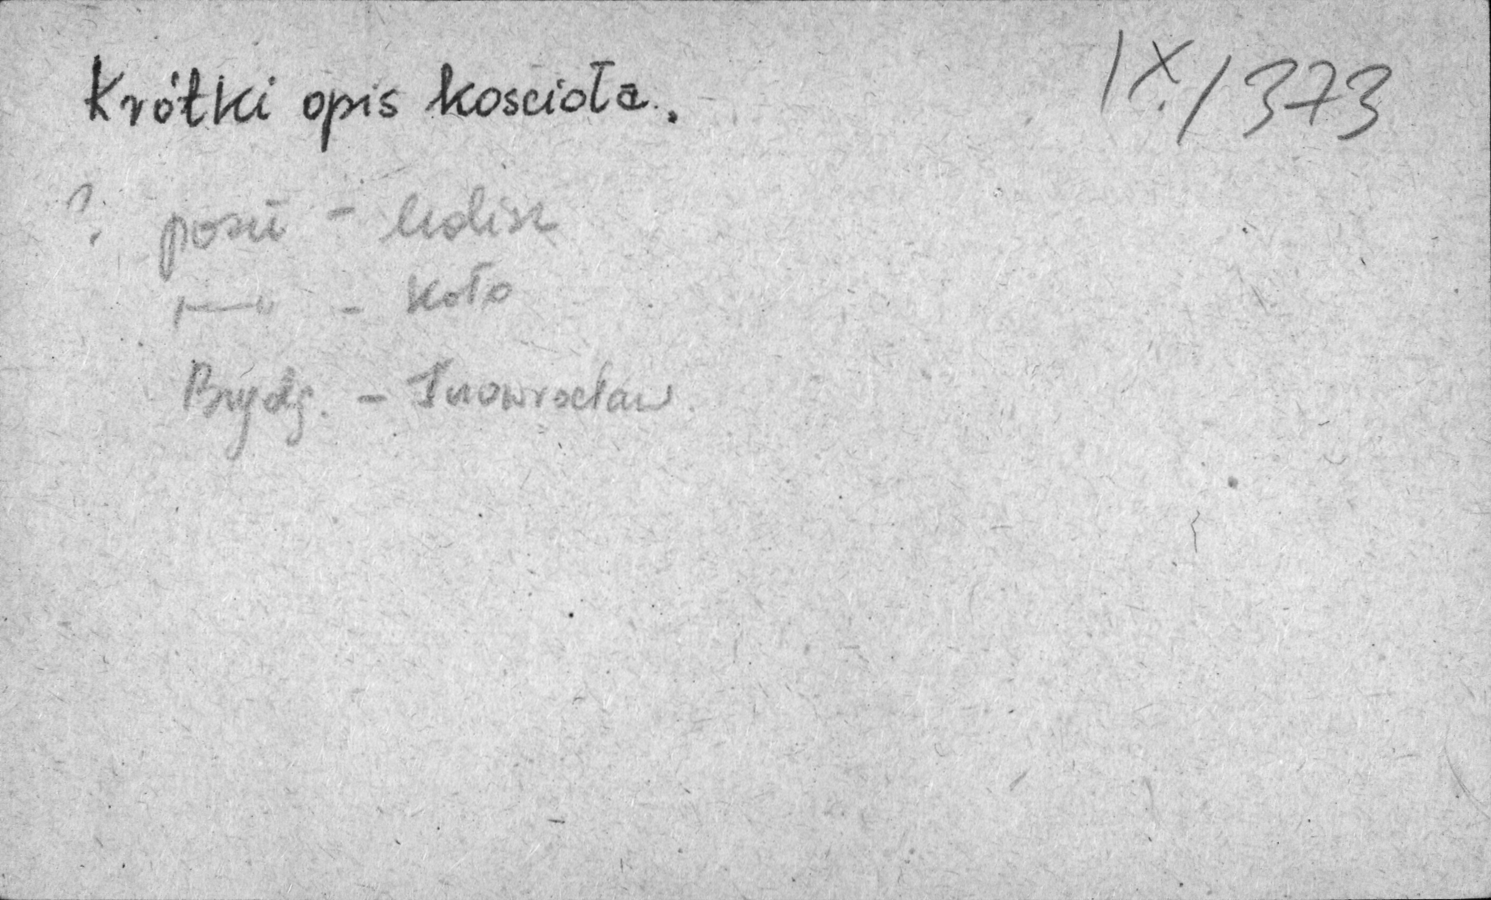 Krótki opis kościoła.
IX/373
? pozn - Kalisz
- Koło
Bydg. - Inowrocław.